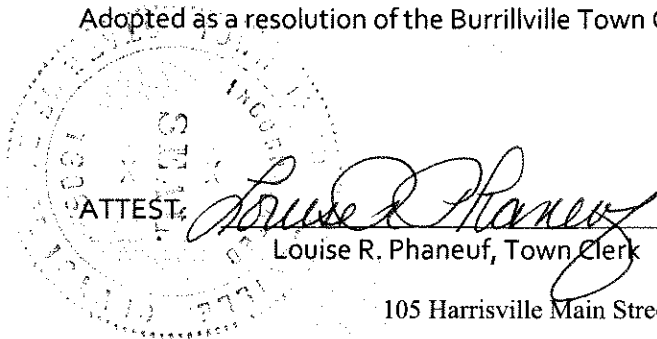 Adopted as a resolution of the Burrillville Town
ATTEST: Louise R Phaneuf
Louise R. Phaneuf, Town Clerk
105 Harrisville Main Stree